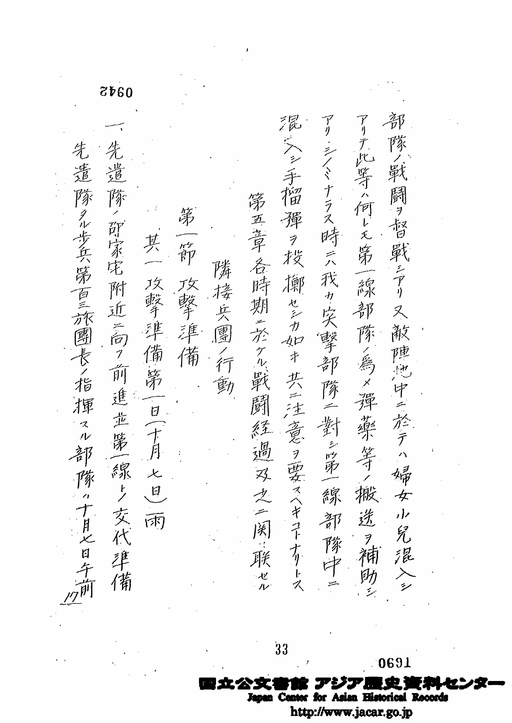 0942
部隊ノ戰闘ヲ督戰シアリ又敵陣地中ニ於テハ婦女小兒混入シ
アリテ此等ハ何レモ第一線部隊ノ爲メ彈藥等ノ搬送ヲ補助シ
アリシノミナラス時ニハ我カ突撃部隊ニ對シ第一線部隊中ニ
混入シ手榴彈ヲ投擲セシカ如キ共ニ注意ヲ要スヘキコトナリトス
第五章 各時期ニ於ケル戰闘経過及之ニ関聯セル
隣接兵團ノ行動
第一節 攻撃準備
其一 攻撃準備第一日(十月七日)雨
一、先遣隊ノ邵家宅附近ニ向フ前進並第一線トノ交代準備
先遣隊タル步兵第百三旅團長ノ指揮スル部隊ハ十月七日午前
17
33
0691
国立公文書館 アジア歴史資料センター
Japan Center for Asian Historical Records
http://www.jacar.go.jp